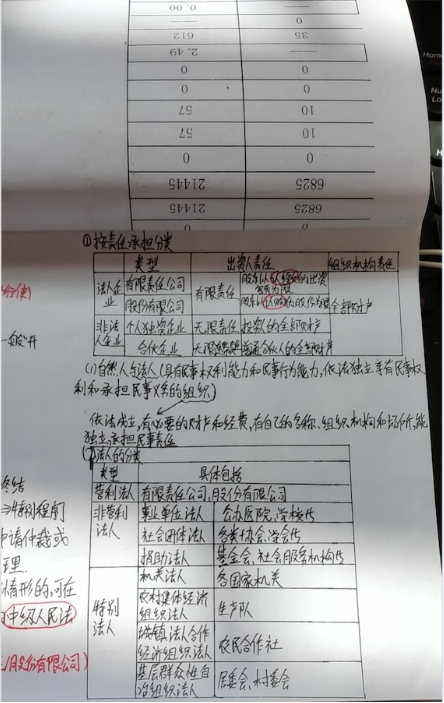 0.00 —
612 35
2.49 —
0 0
0 0
57 10
57 10
0 0
21445 6825
21445 6825
①按责任承担分类
类型 出资人责任 组织机构责任
法人企业 有限责任公司 有限责任 股东以认缴的出资额为限
股份有限公司 股东以认购的股份为限 全部财产
非法人企业 个人独资企业 无限责任 投资人的全部财产
合伙企业 无限 普通合伙人的全部财产
(1)自然人与法人(具有民事权利能力和民事行为能力,依法独立享有民事权
利和承担民事义务的组织。)
依法成立,有必要的财产和经费,有自己的名称、组织机构和场所,能
独立承担民事责任
法人的分类
类型 具体包括
营利法人 有限责任公司,股份有限公司
非营利法人 事业单位法人 公办医院,学校等
社会团体法人 各类协会,学会等
捐助法人 基金会,社会服务机构等
特别法人 机关法人 各国家机关
农村集体经济组织法人 生产队
城镇农村合作经济组织法人 农民合作社
基层群众性自治组织法人 居委会,村委会
终结
特别程序
申请仲裁或
理
情形的,可在
中级人民法
股份有限公司)